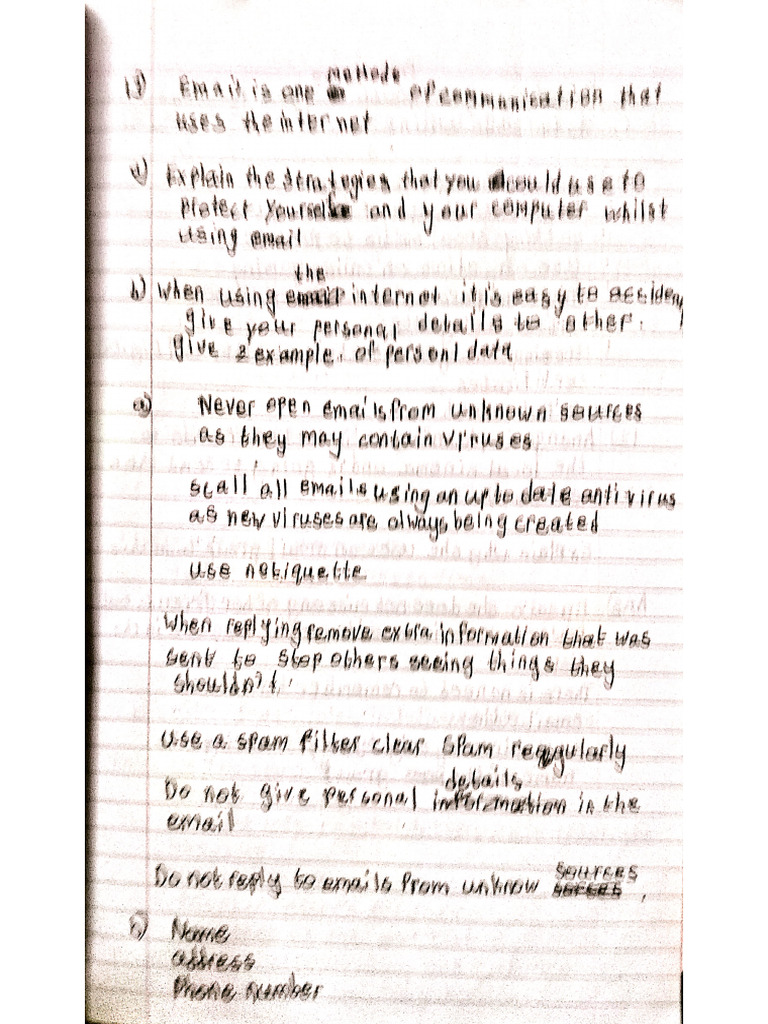 1) Email is one method of communication that
uses the internet
a) Explain the strategies that you should use to
protect yourself and your computer whilst
using email
b) When using the internet it is easy to acciden
give your personal details to other.
give 2 example. of personl data
a) Never open emails from unknown sources
as they may contain viruses
scall all emails using an up to date anti virus
as new viruses are always being created
use netiquette
When replying remove extra information that was
sent to stop others seeing things they
shouldn't.
Use a spam filter clear spam regularly
Do not give personal details in the
email
Do not reply to emails from unknow sources.
Name
address
Phone number